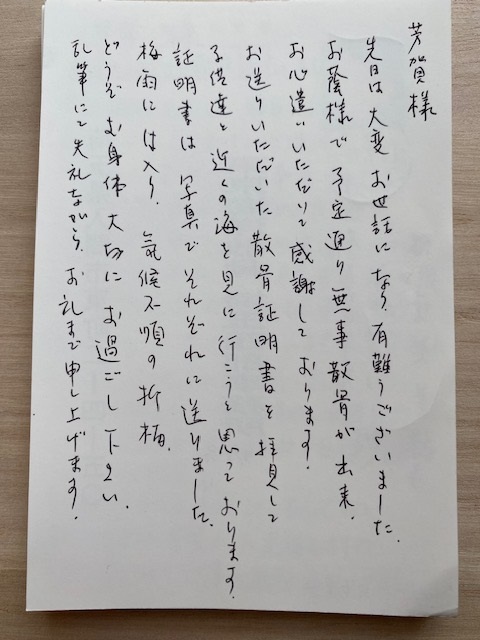 芳賀様
先日は大変お世話になり、有難うございました。
お蔭様で予定通り無事散骨が出来、
お心遣いいただいて感謝しております。
お送りいただいた散骨証明書を拝見して
子供達と近くの海を見に行こうと思っております。
証明書は写真でそれぞれに送りました。
梅雨には入り、気候不順の折柄、
どうぞお身体大切にお過ごし下さい。
乱筆にて失礼ながら、お礼まで申し上げます。